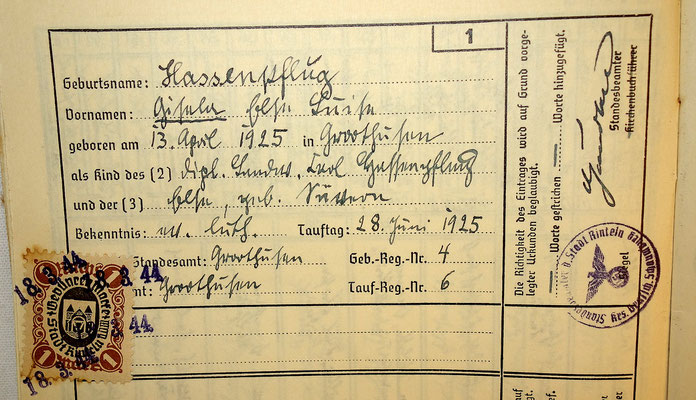 1
Geburtsname: Hassenpflug
Vornamen: Gisela Else Luise
geboren am 13. April 1925 in Groothusen
als Kind des (2) dipl. Landw. Carl Hassenpflug
und der (3) Else, geb. Süvern
Bekenntnis: ev. luth. Tauftag: 28. Juni 1925
Standesamt: Groothusen Geb.-Reg.-Nr. 4
mt: Groothusen Tauf-Reg.-Nr. 6
Die Richtigkeit des Eintrages wird auf Grund vorge-
legter Urkunden beglaubigt.
— Worte gestrichen — Worte hinzugefügt.
Standesbeamter
Kirchenbuchführer
Siegel
Stadt Rinteln
18. 3. 44.
3. 44.
3. 44.
18. 3.
1 1
1 1